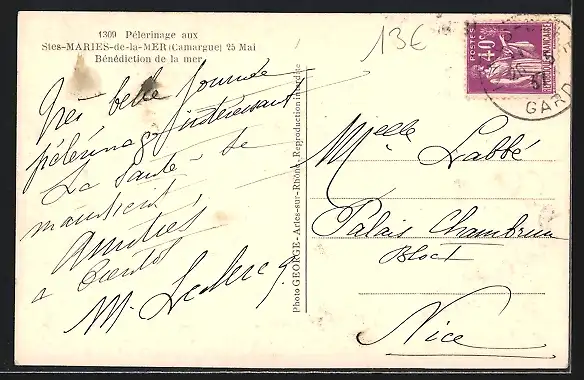 1309 Pélerinage aux
Stes-MARIES-de-la-MER (Camargue) 25 Mai
Bénédiction de la mer
13€
POSTES
40c
GARD
Très belle journée
pélérinage intéressant
La santé se
maintient
Amitiés
a bientôt
M. Leclerc
Photo GEORGE - Arles-sur-Rhône, Reproduction interdite
Melle Labbé
Palais Chambrun
Bloc I
Nice